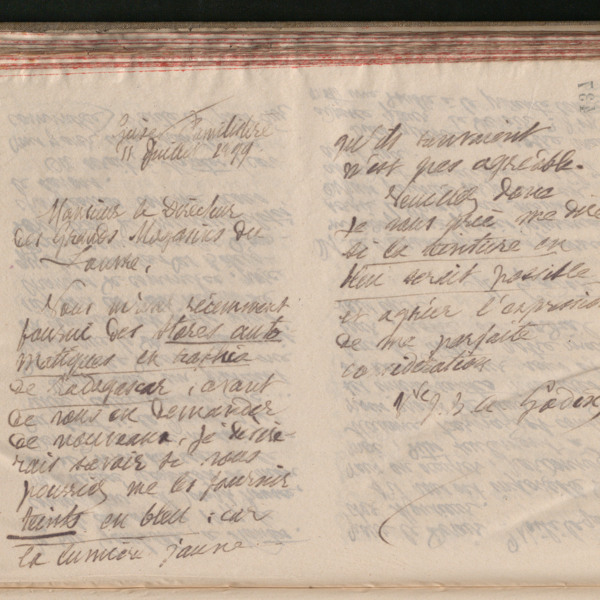 Guise Familistère
11 Juillet 1899.
Monsieur le Directeur
des Grands Magasins du
Louvre,
Vous m'avez récemment
fourni des stores auto
matiques en raphia
de Madagascar ; avant
de vous en demander
de nouveaux, je désire-
rais savoir si vous
pourriez me les fournir
teints en bleu ; car
la lumière jaune
qu'ils
n'est pas agréable.
Veuillez donc
je vous prie me dire
si la teinture en
bleu serait possible
et agréer l'expression
de ma parfaite
considération
Vve J. B. A. Godin
437